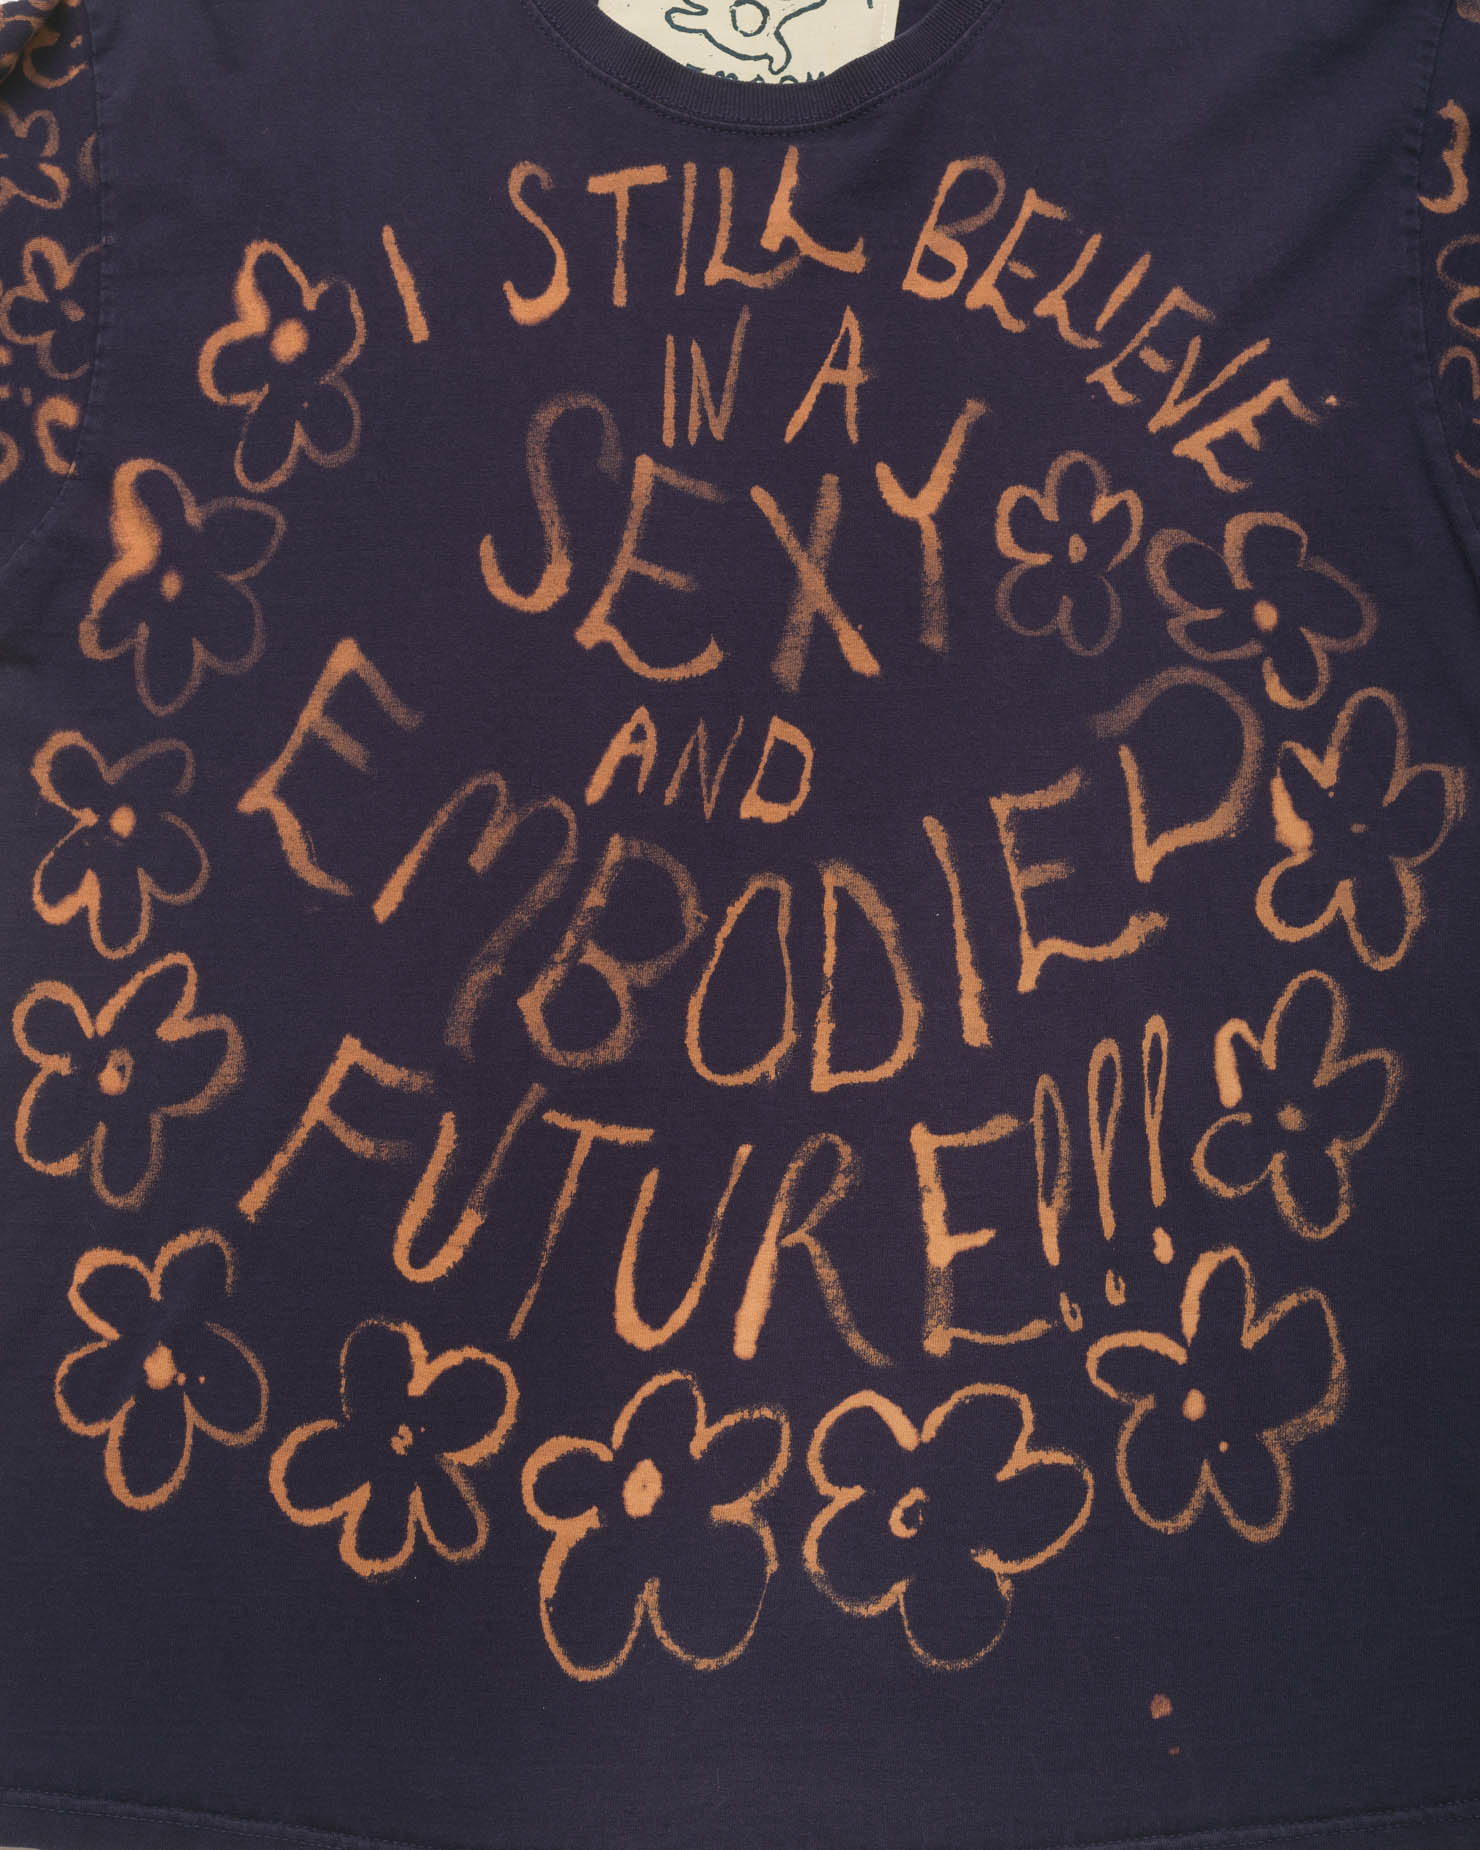 I STILL BELIEVE
IN A
SEXY
AND
EMBODIED
FUTURE!!!